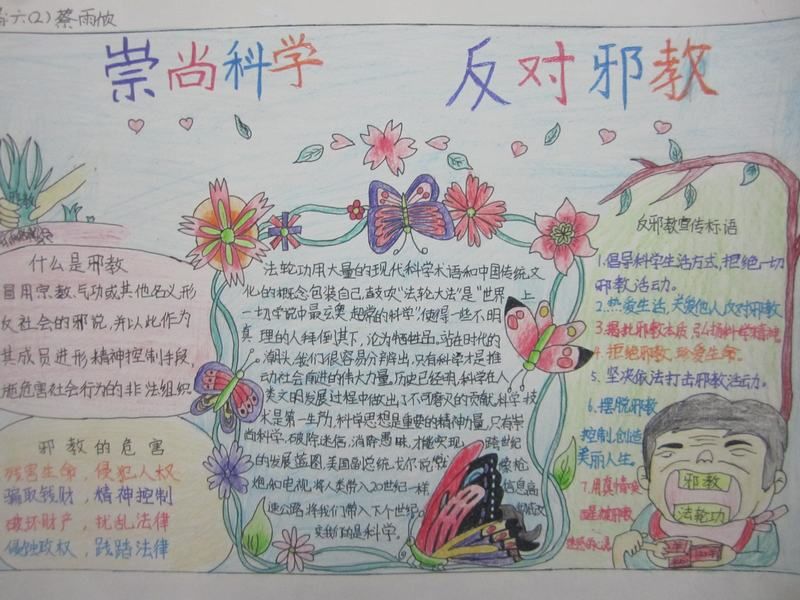 六(2) 蔡雨欣
崇尚科学 反对邪教
什么是邪教
冒用宗教、气功或其他名义,形
反社会的邪说,并以此作为
其成员进形精神控制手段,
施危害社会行为的非法组织
邪教的危害
残害生命,侵犯人权
骗取钱财,精神控制
破坏财产,扰乱法律
侵蚀政权,践踏法律
法轮功用大量的现代科学术语和中国传统文
化的概念包装自己,鼓吹“法轮大法”是“世界上
一切学说中最玄奥、超常的科学”使得一些不明
真理的人拜倒其下,沦为牺牲品,站在时代的
潮头,我们很容易分辨出,只有科学才是推
动社会前进的伟大力量。历史已经明,科学在人
类文明发展过程中做出了不可磨灭的贡献,科学技
术是第一生势,科学思想是重要的精神力量,只有崇
尚科学,破除迷信,消除愚昧,才能实现跨世纪
的发展蓝图,美国副总统戈尔说
炮和电视,将人类带入20世纪一样,信息高
速公路,将我们带入下个世纪
实我们的是科学。
反邪教宣传标语
1.倡导科学生活方式,拒绝一切
邪教活动。
2.热爱生活,关爱他人,反对邪教
3.揭批邪教本质,弘扬科学精神
4.拒绝邪教,珍爱生命。
5.坚决依法打击邪教活动。
6.摆脱邪教
控制,创造
美丽人生。
7.用真情
邪教
法轮功